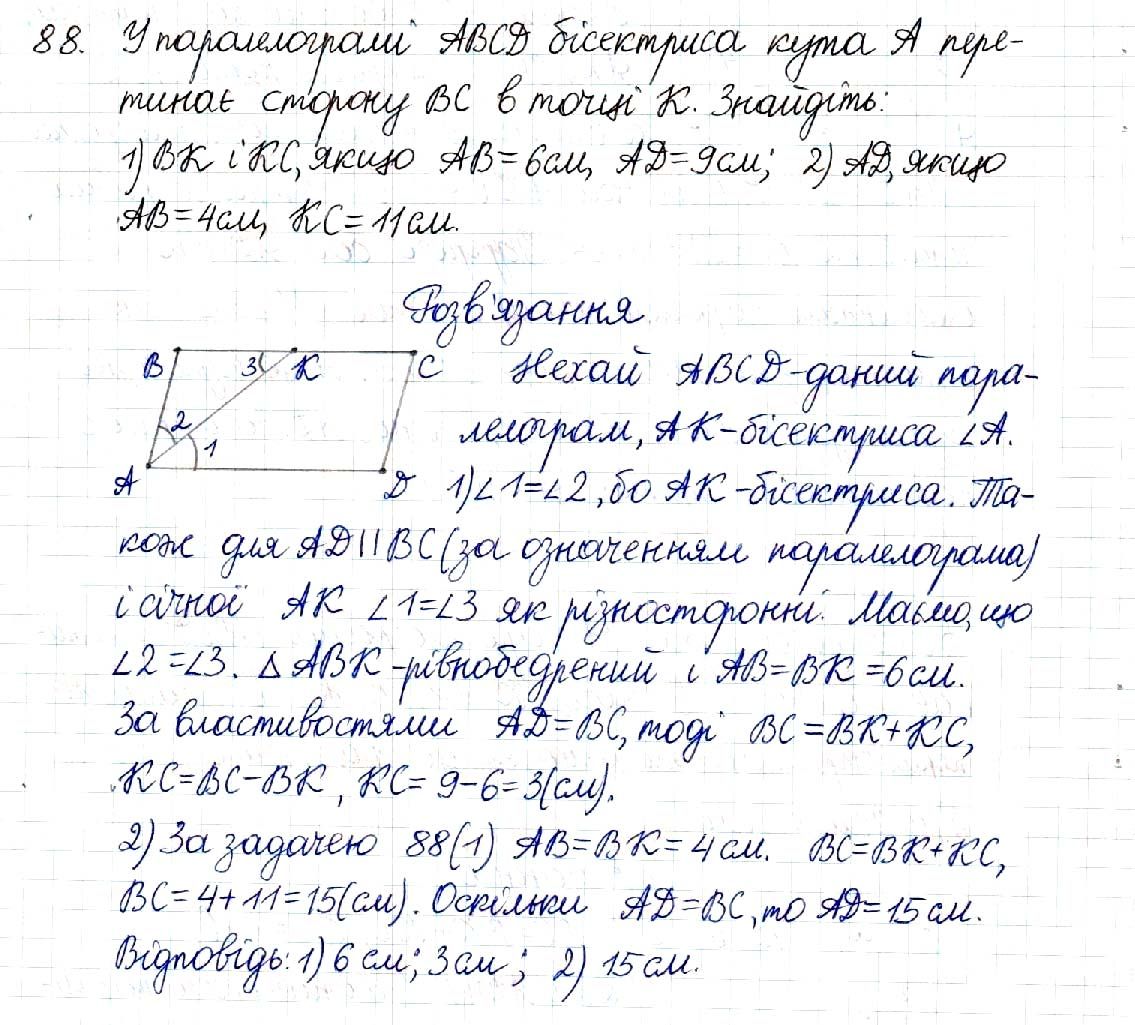 88. У паралелограмі ABCD бісектриса кута A пере-
тинає сторону BC в точці K. Знайдіть:
1) BK і KC, якщо AB = 6 см, AD = 9 см; 2) AD, якщо
AB = 4 см, KC = 11 см.
Розв'язання
B 3 K C
2
1
A D
Нехай ABCD - даний пара-
лелограм, AK - бісектриса ∠A.
1) ∠1 = ∠2, бо AK - бісектриса. Та-
кож для AD || BC (за означенням паралелограма)
і січної AK ∠1 = ∠3 як різносторонні. Маємо, що
∠2 = ∠3. △ ABK - рівнобедрений і AB = BK = 6 см.
За властивостями AD = BC, тоді BC = BK + KC,
KC = BC - BK, KC = 9 - 6 = 3 (см).
2) За задачею 88(1) AB = BK = 4 см. BC = BK + KC,
BC = 4 + 11 = 15 (см). Оскільки AD = BC, то AD = 15 см.
Відповідь: 1) 6 см; 3 см; 2) 15 см.